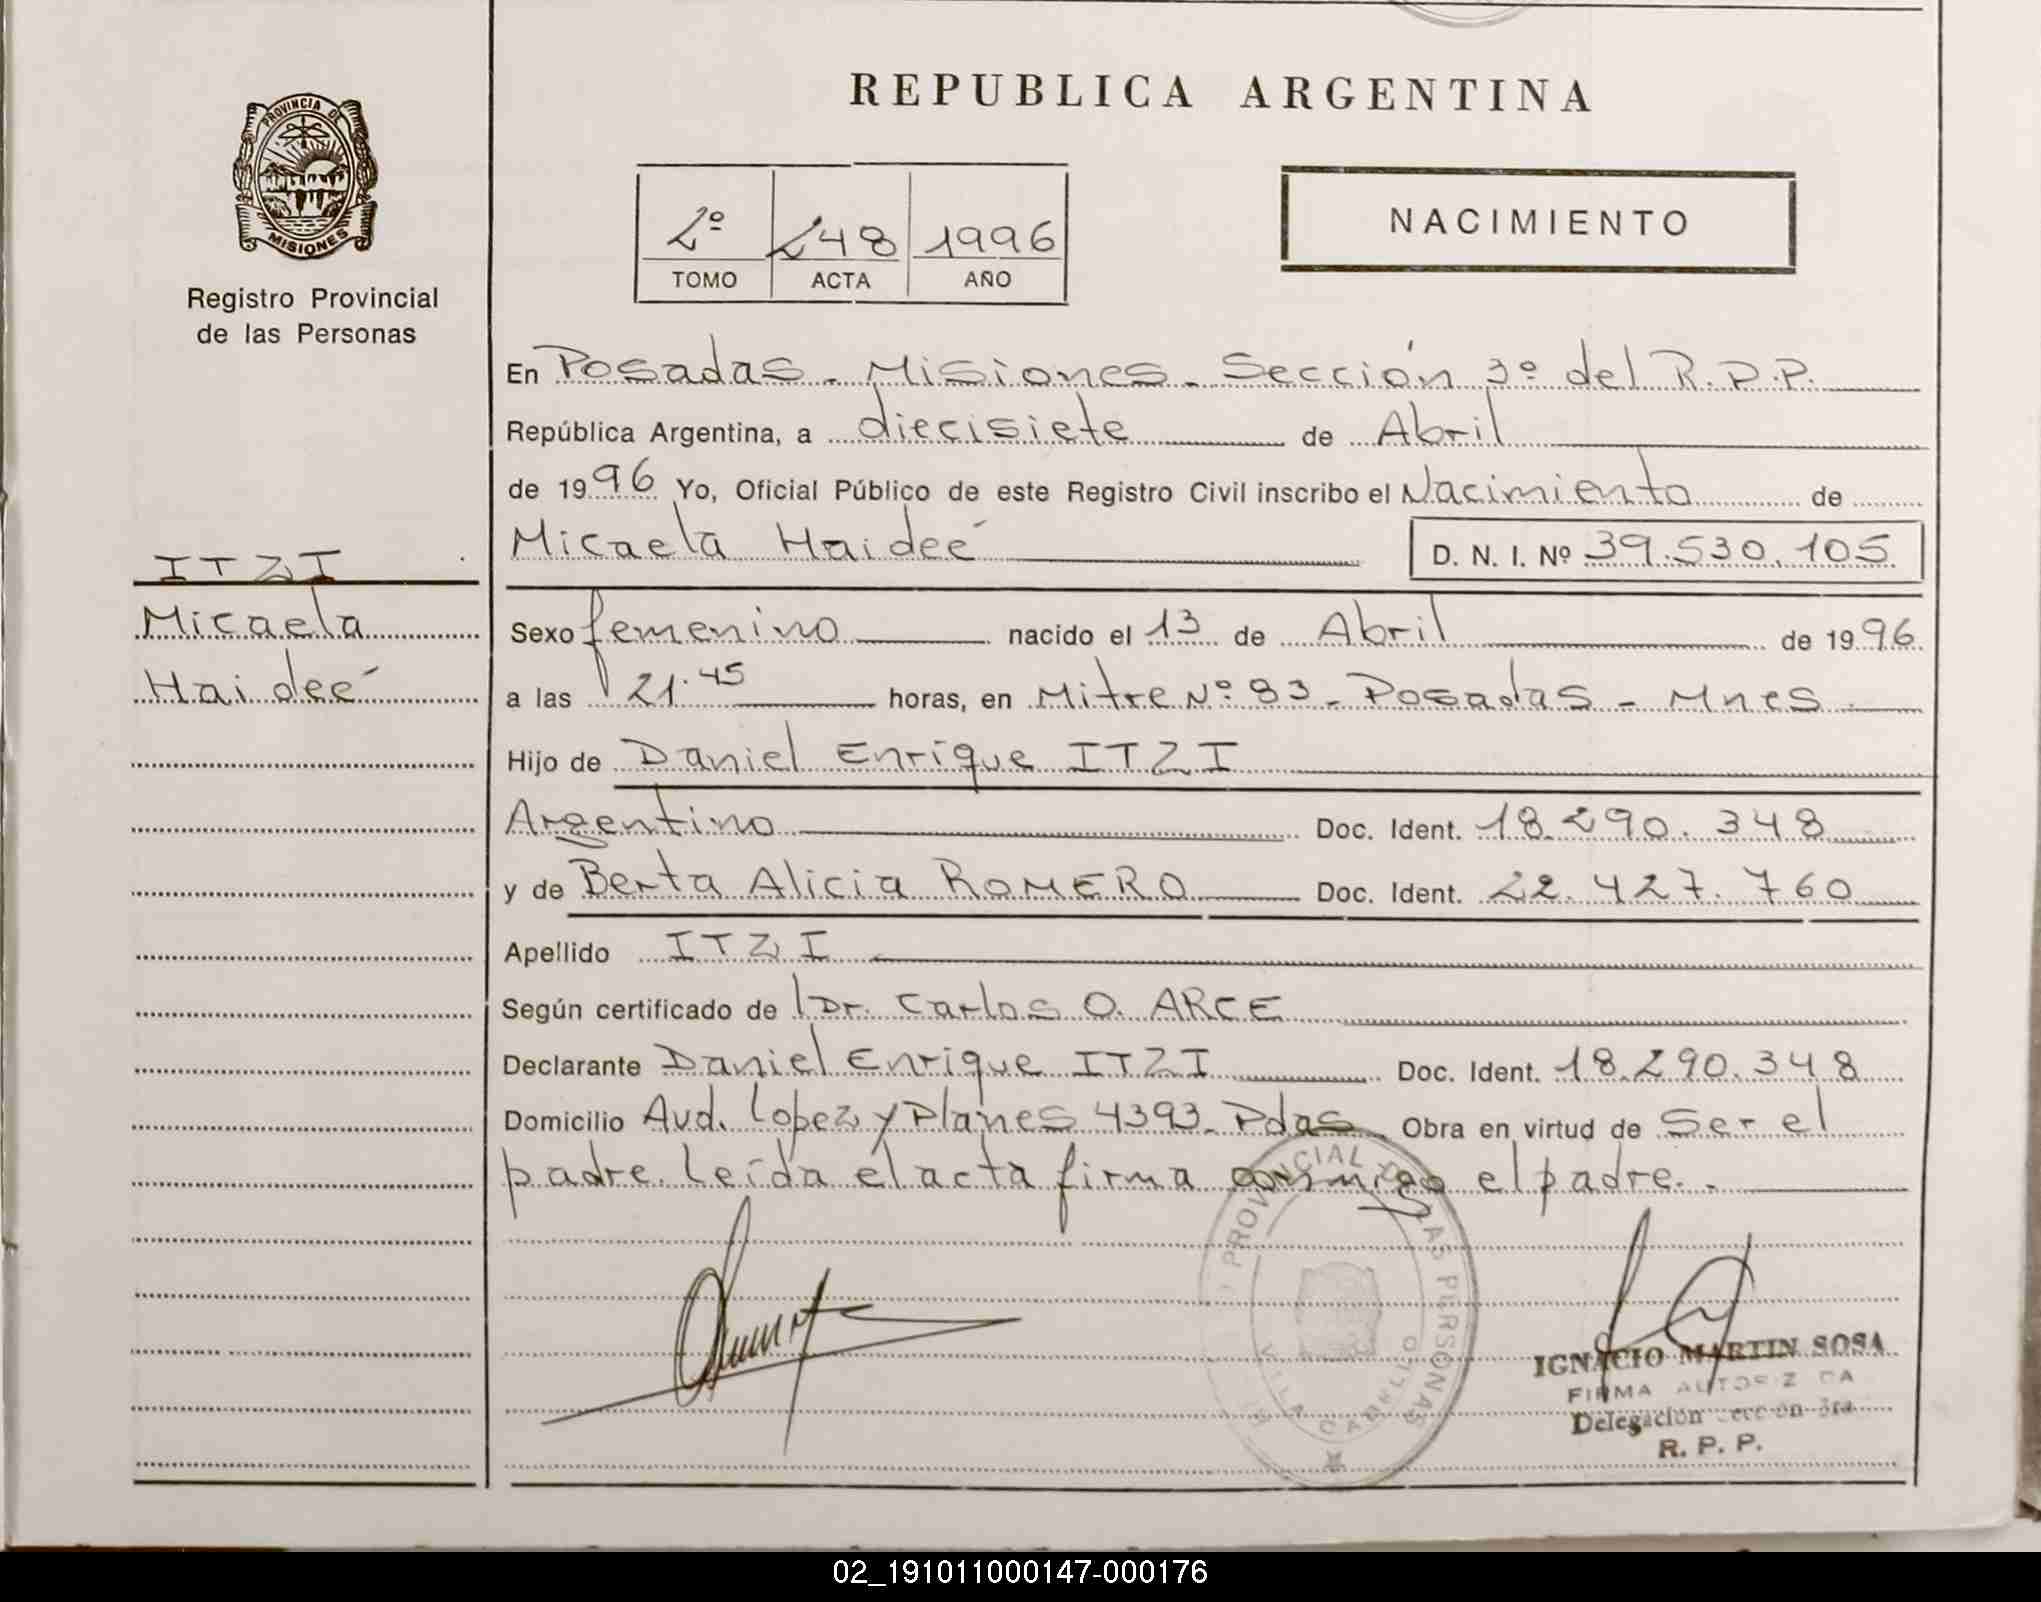 REPUBLICA ARGENTINA
PROVINCIA DE
MISIONES
Registro Provincial
de las Personas
2º 248 1996
TOMO ACTA AÑO
NACIMIENTO
En Posadas - Misiones - Sección 3º del R.P.P.
República Argentina, a diecisiete de Abril
de 1996 Yo, Oficial Público de este Registro Civil inscribo el Nacimiento de
Micaela Haideé D. N. I. Nº 39.530.105
ITZI
Micaela
Haideé
Sexo femenino nacido el 13 de Abril de 1996
a las 21:45 horas, en Mitre Nº 83 - Posadas - Mnes
Hijo de Daniel Enrique ITZI
Argentino Doc. Ident. 18.290.348
y de Berta Alicia ROMERO Doc. Ident. 22.427.760
Apellido ITZI
Según certificado de Dr. Carlos O. ARCE
Declarante Daniel Enrique ITZI Doc. Ident. 18.290.348
Domicilio Avd. Lopez y Planes 4393 - Pdas Obra en virtud de Ser el
padre. Leída el acta firma conmigo el padre. -
PROVINCIAL DE LAS PERSONAS
VILLA CABELLO
IGNACIO MARTIN SOSA
FIRMA AUTORIZADA
Delegación Sección 3ra
R. P. P.
02_191011000147-000176